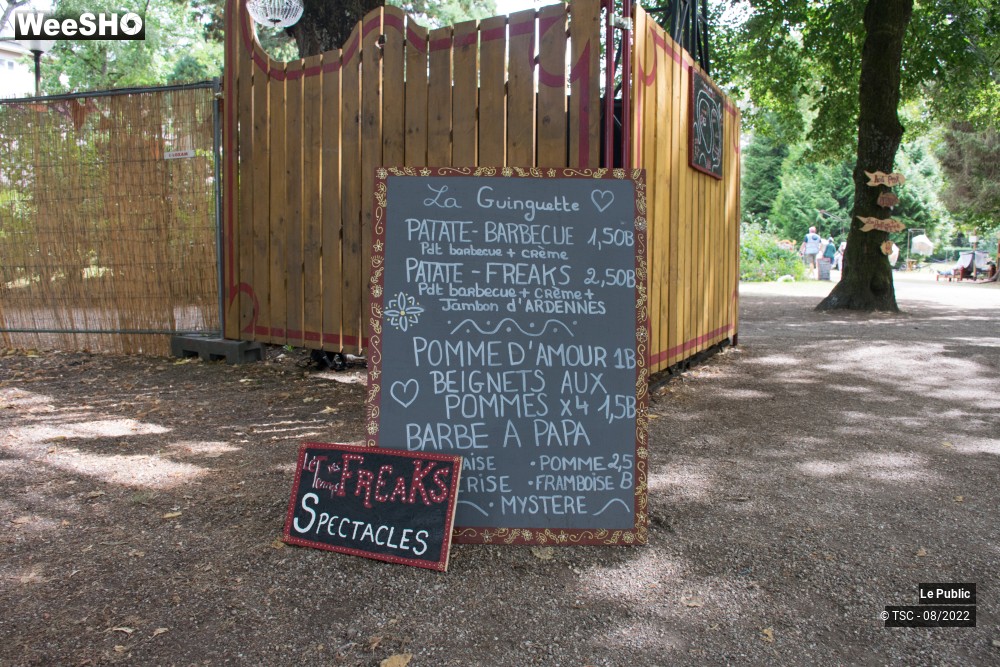 WeeSHO
La Guinguette
PATATE-BARBECUE 1,50B
Pdt barbecue + crème
PATATE-FREAKS 2,50B
Pdt barbecue + Crème +
Jambon d'ARDENNES
POMME D'AMOUR 1B
BEIGNETS AUX
POMMES x4 1,5B
BARBE A PAPA
AISE • POMME 2,5
ERISE • FRAMBOISE B
• MYSTERE
FREAKS
SPECTACLES
Le Public
© TSC - 08/2022